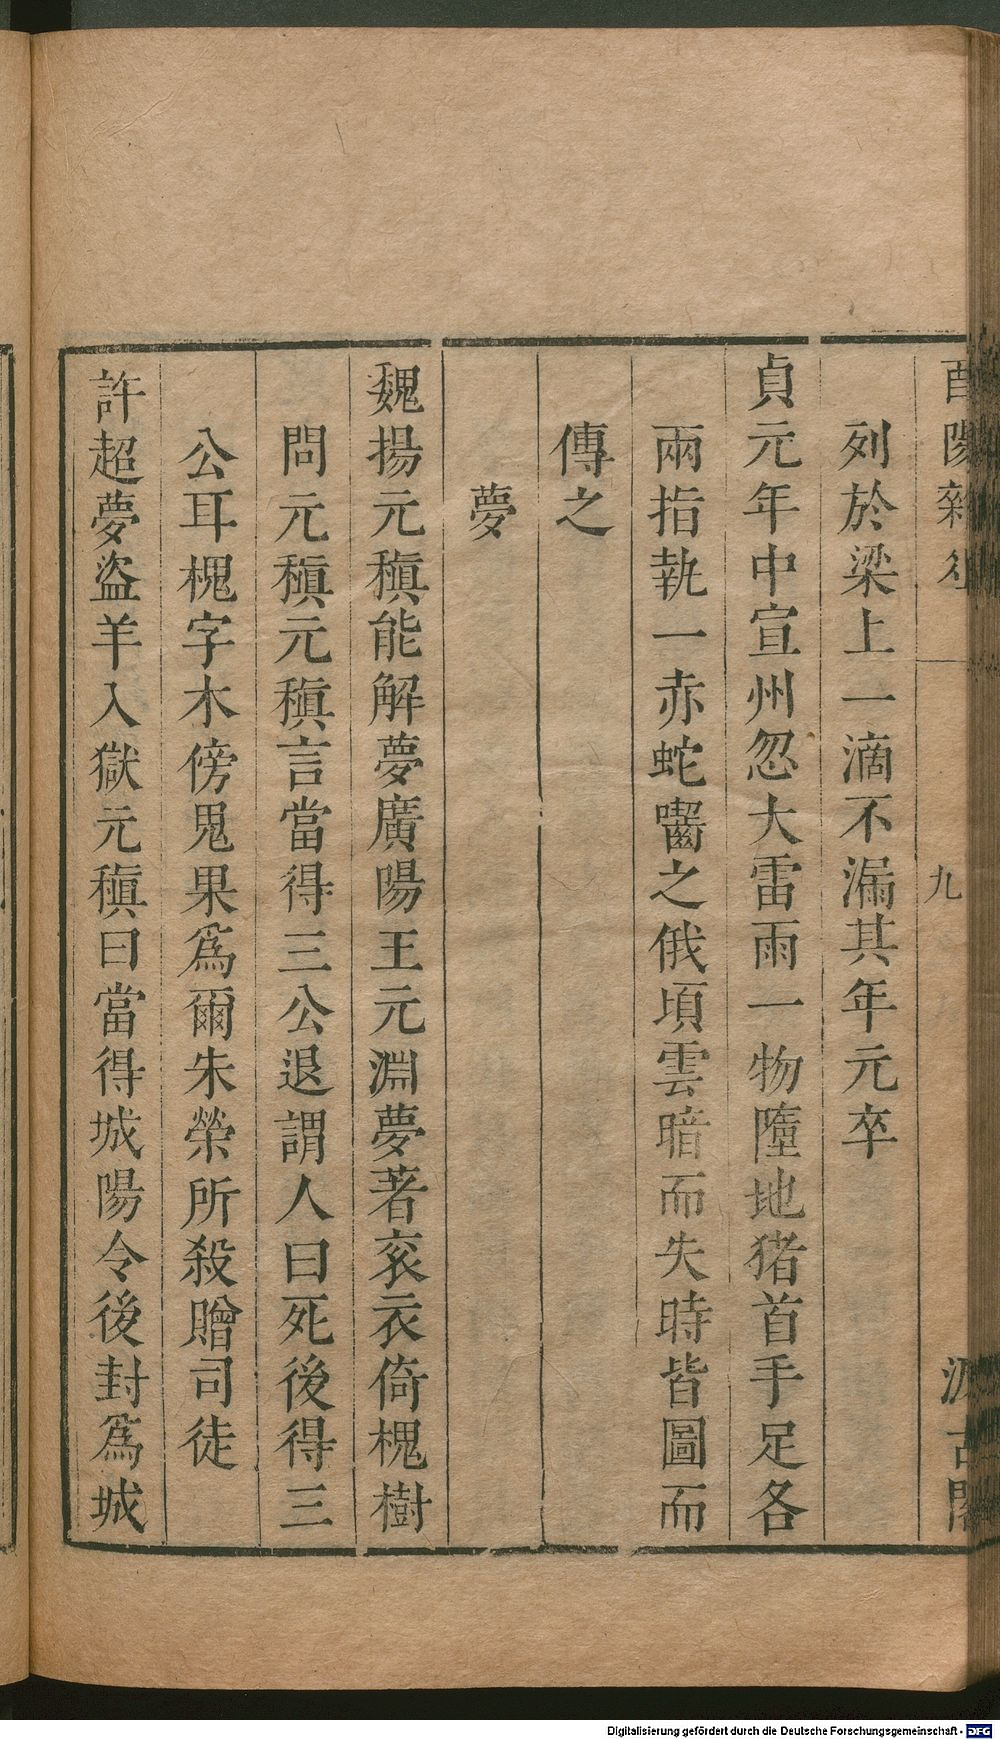 酉陽雜俎 九 汲古閣
列於梁上一滴不漏其年元卒
貞元年中宣州忽大雷雨一物墮地猪首手足各
兩指執一赤蛇嚙之俄頃雲暗而失時皆圖而
傳之
夢
魏揚元稹能解夢廣陽王元淵夢著衮衣倚槐樹
問元稹元稹言當得三公退謂人曰死後得三
公耳槐字木傍鬼果爲爾朱榮所殺贈司徒
許超夢盗羊入獄元稹曰當得城陽令後封爲城
Digitalisierung gefördert durch die Deutsche Forschungsgemeinschaft - DFG